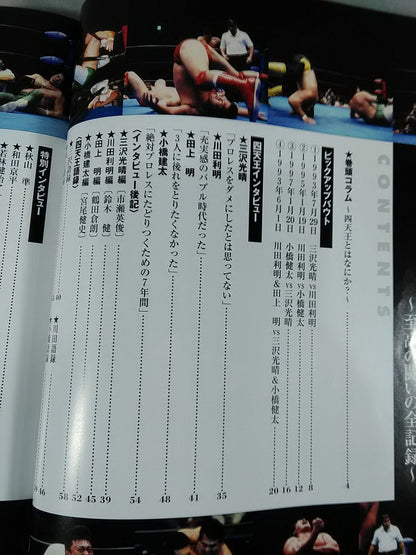 CONTENTS
至高の闘いの全記録〜
★巻頭コラム 〜四天王とはなにか?〜……4
ピックアップバウト
①1993年7月29日 三沢光晴vs川田利明……8
②1995年1月19日 川田利明vs小橋健太……12
③1997年1月20日 小橋健太vs三沢光晴……16
④1993年6月1日 川田利明&田上 明vs三沢光晴&小橋健太……20
四天王インタビュー
★三沢光晴
「プロレスをダメにしたとは思ってない」……35
★川田利明
「充実感のバブル時代だった」……41
★田上 明
「3人に後れをとりたくなかった」……48
★小橋健太
「絶対プロレスにたどりつくための7年間」……54
〈インタビュー後記〉
★三沢光晴編[市瀬英俊]……39
★川田利明編[鈴木 健]……45
★田上 明編[鶴田倉朗]……52
★小橋健太編[宮尾健史]……58
〈四天王語録〉
語録……46
★川田語録
特別インタビュー
★秋山 準
★和田京平
★若林健治